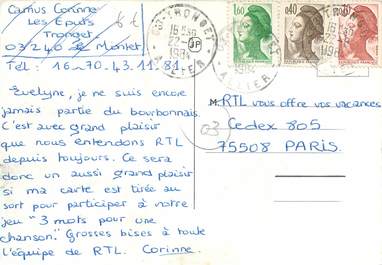 Camus Corinne
Les Epuis
Tronget.
03240 Le Montet.
Tél: 16_70.43.11.81.
Evelyne, je ne suis encore
jamais partie du bourbonnais.
C'est avec grand plaisir
que nous entendons RTL
depuis toujours. Ce sera
donc un aussi grand plaisir
si ma carte est tirée au
sort pour participer à notre
jeu "3 mots pour une
chanson." Grosses bises à toute
l'équipe de RTL. Corinne.
TRONGET
ALLIER
1,60
0,40
0,20
M. RTL vous offre vos vacances
Cedex 805
75508 PARIS.
03